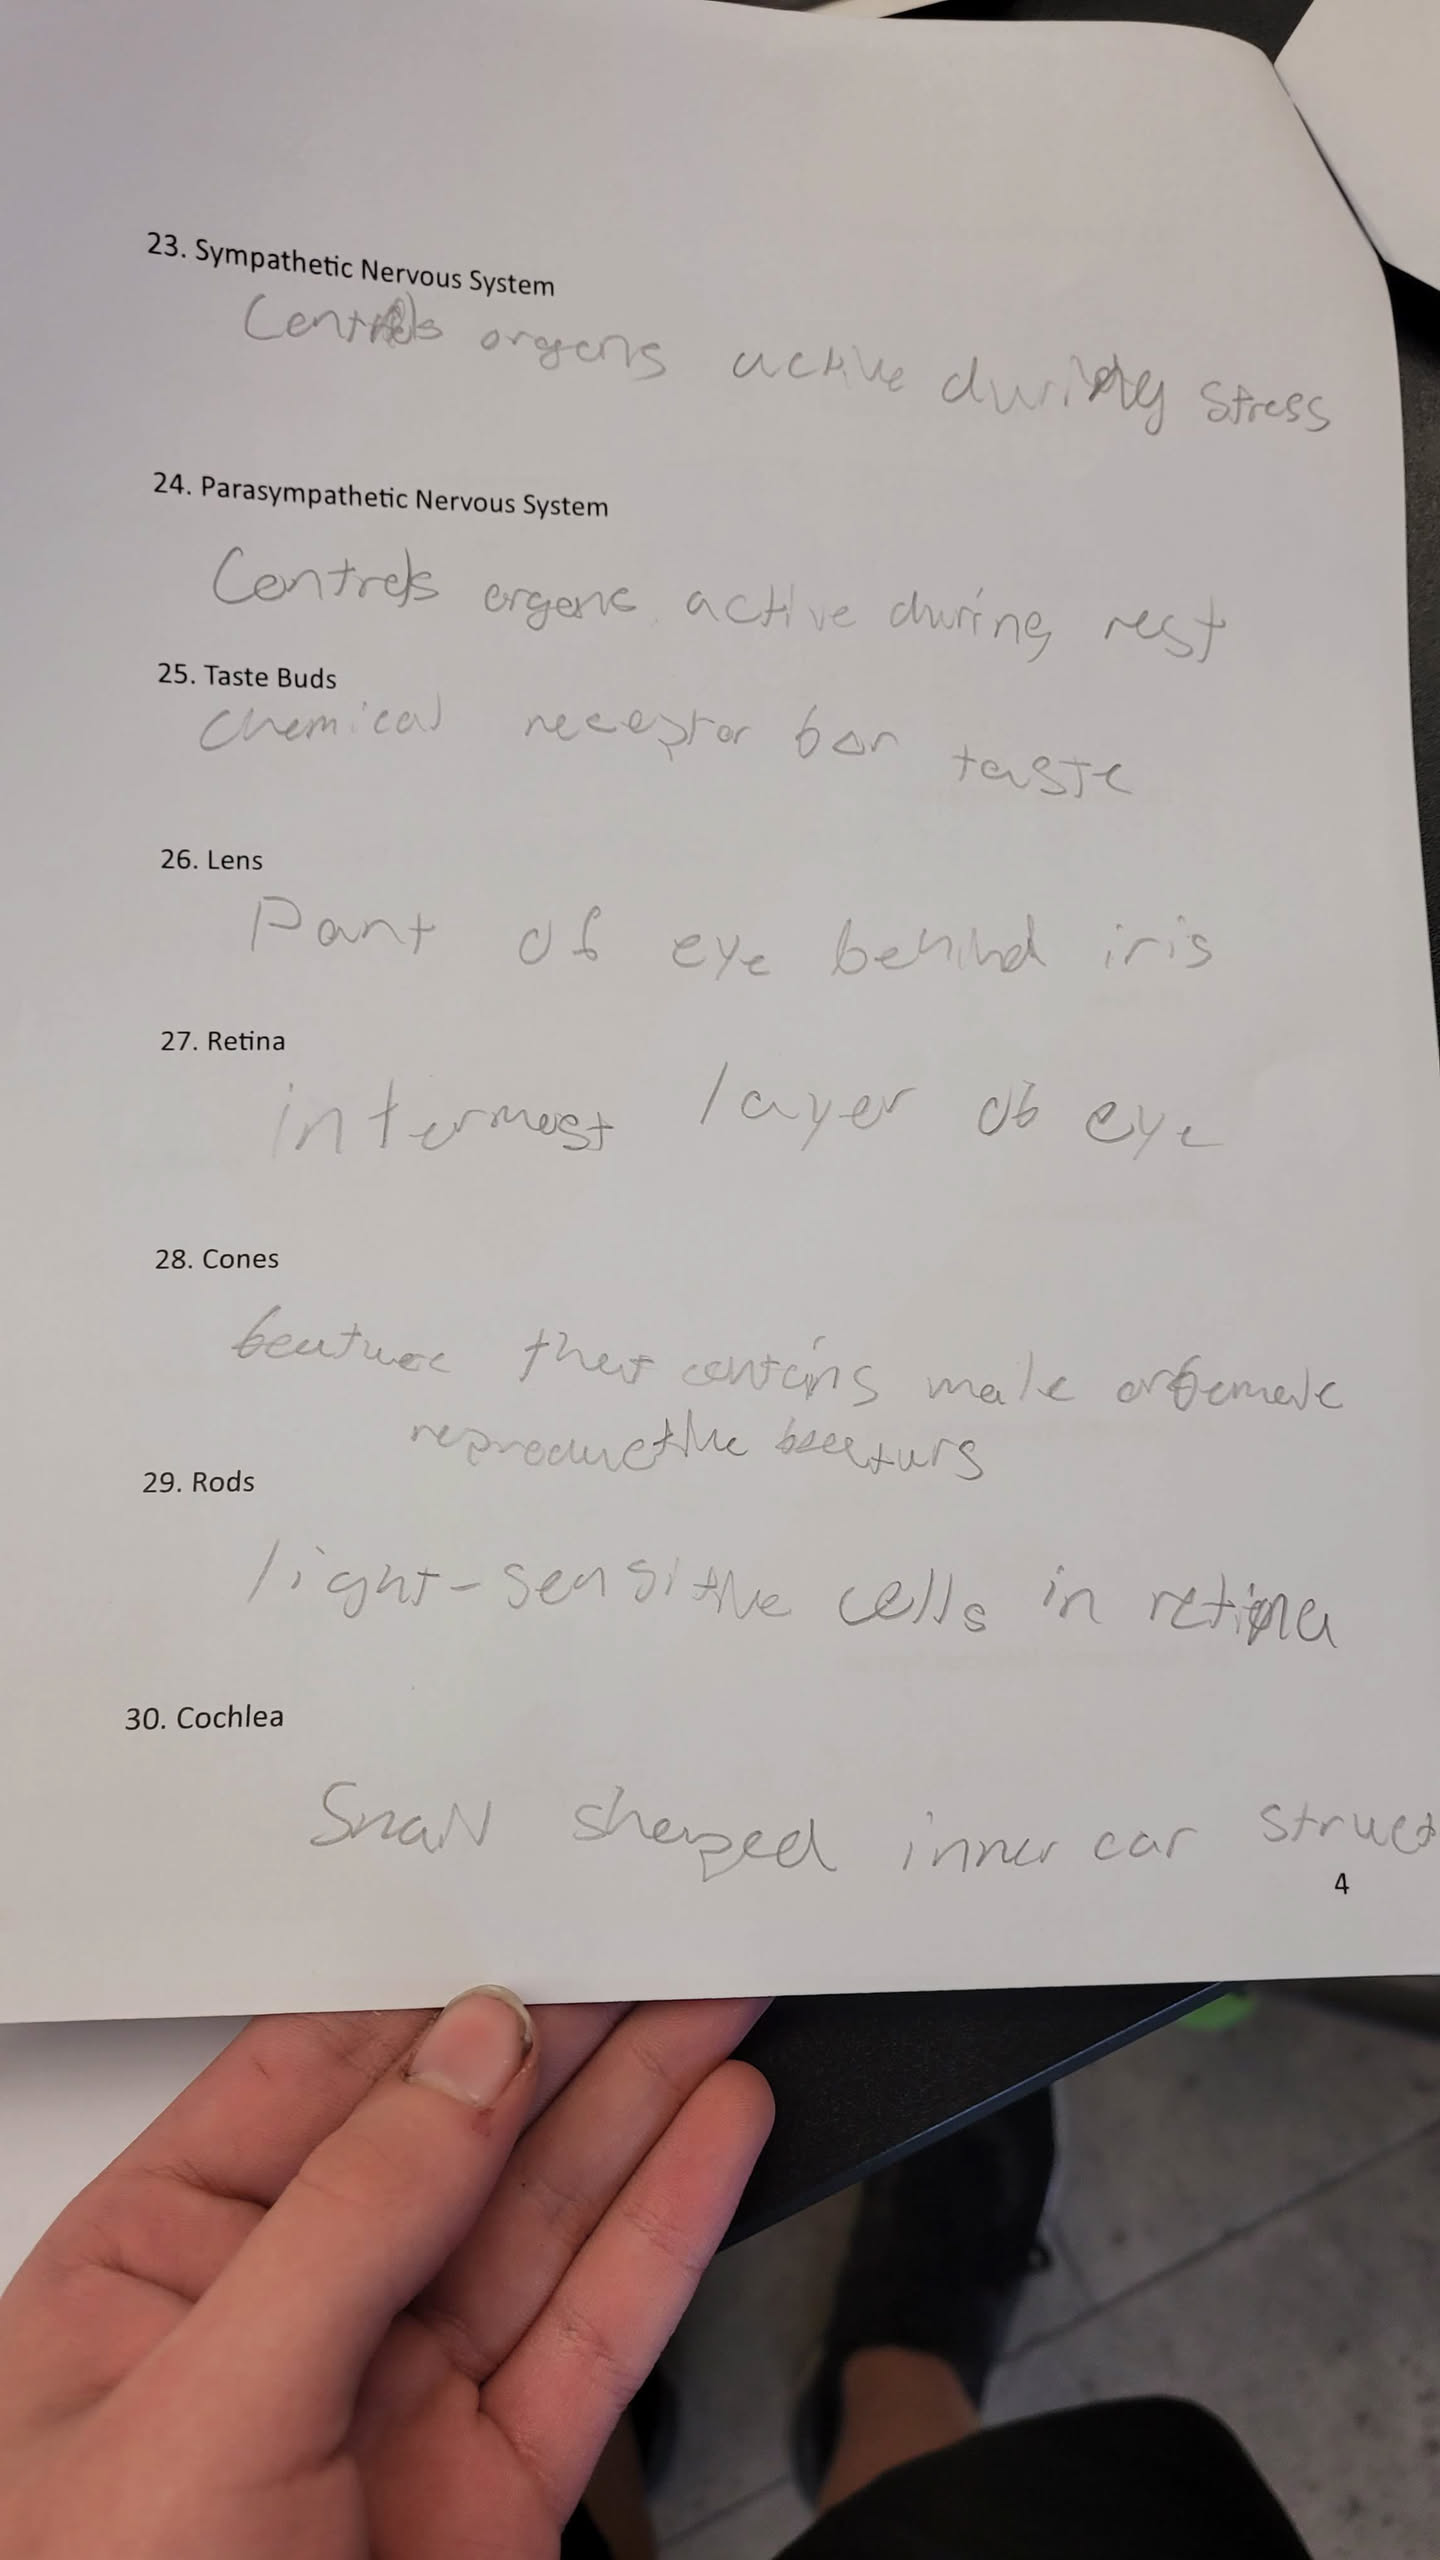 23. Sympathetic Nervous System
Controls organs active during stress
24. Parasympathetic Nervous System
Controls organs active during rest
25. Taste Buds
Chemical receptor for taste
26. Lens
Part of eye behind iris
27. Retina
intermost layer of eye
28. Cones
feature that contains male or female
reproductive
29. Rods
light-sensitive cells in retina
30. Cochlea
Snail shaped inner ear struct
4